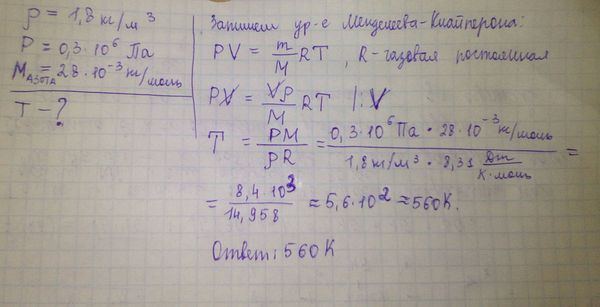 ρ = 1,8 кг/м³
P = 0,3·10⁶ Па
M_АЗОТА = 28·10⁻³ кг/моль
T – ?
Запишем ур-е Менделеева-Клайперона:
PV = m/M RT, R-газовая постоянная
PV = Vρ/M RT |:V
T = PM/ρR = 0,3·10⁶ Па · 28·10⁻³ кг/моль / 1,8 кг/м³ · 8,31 Дж/К·моль =
= 8,4·10³/14,958 ≈ 5,6·10² ≈ 560 К.
Ответ: 560 К